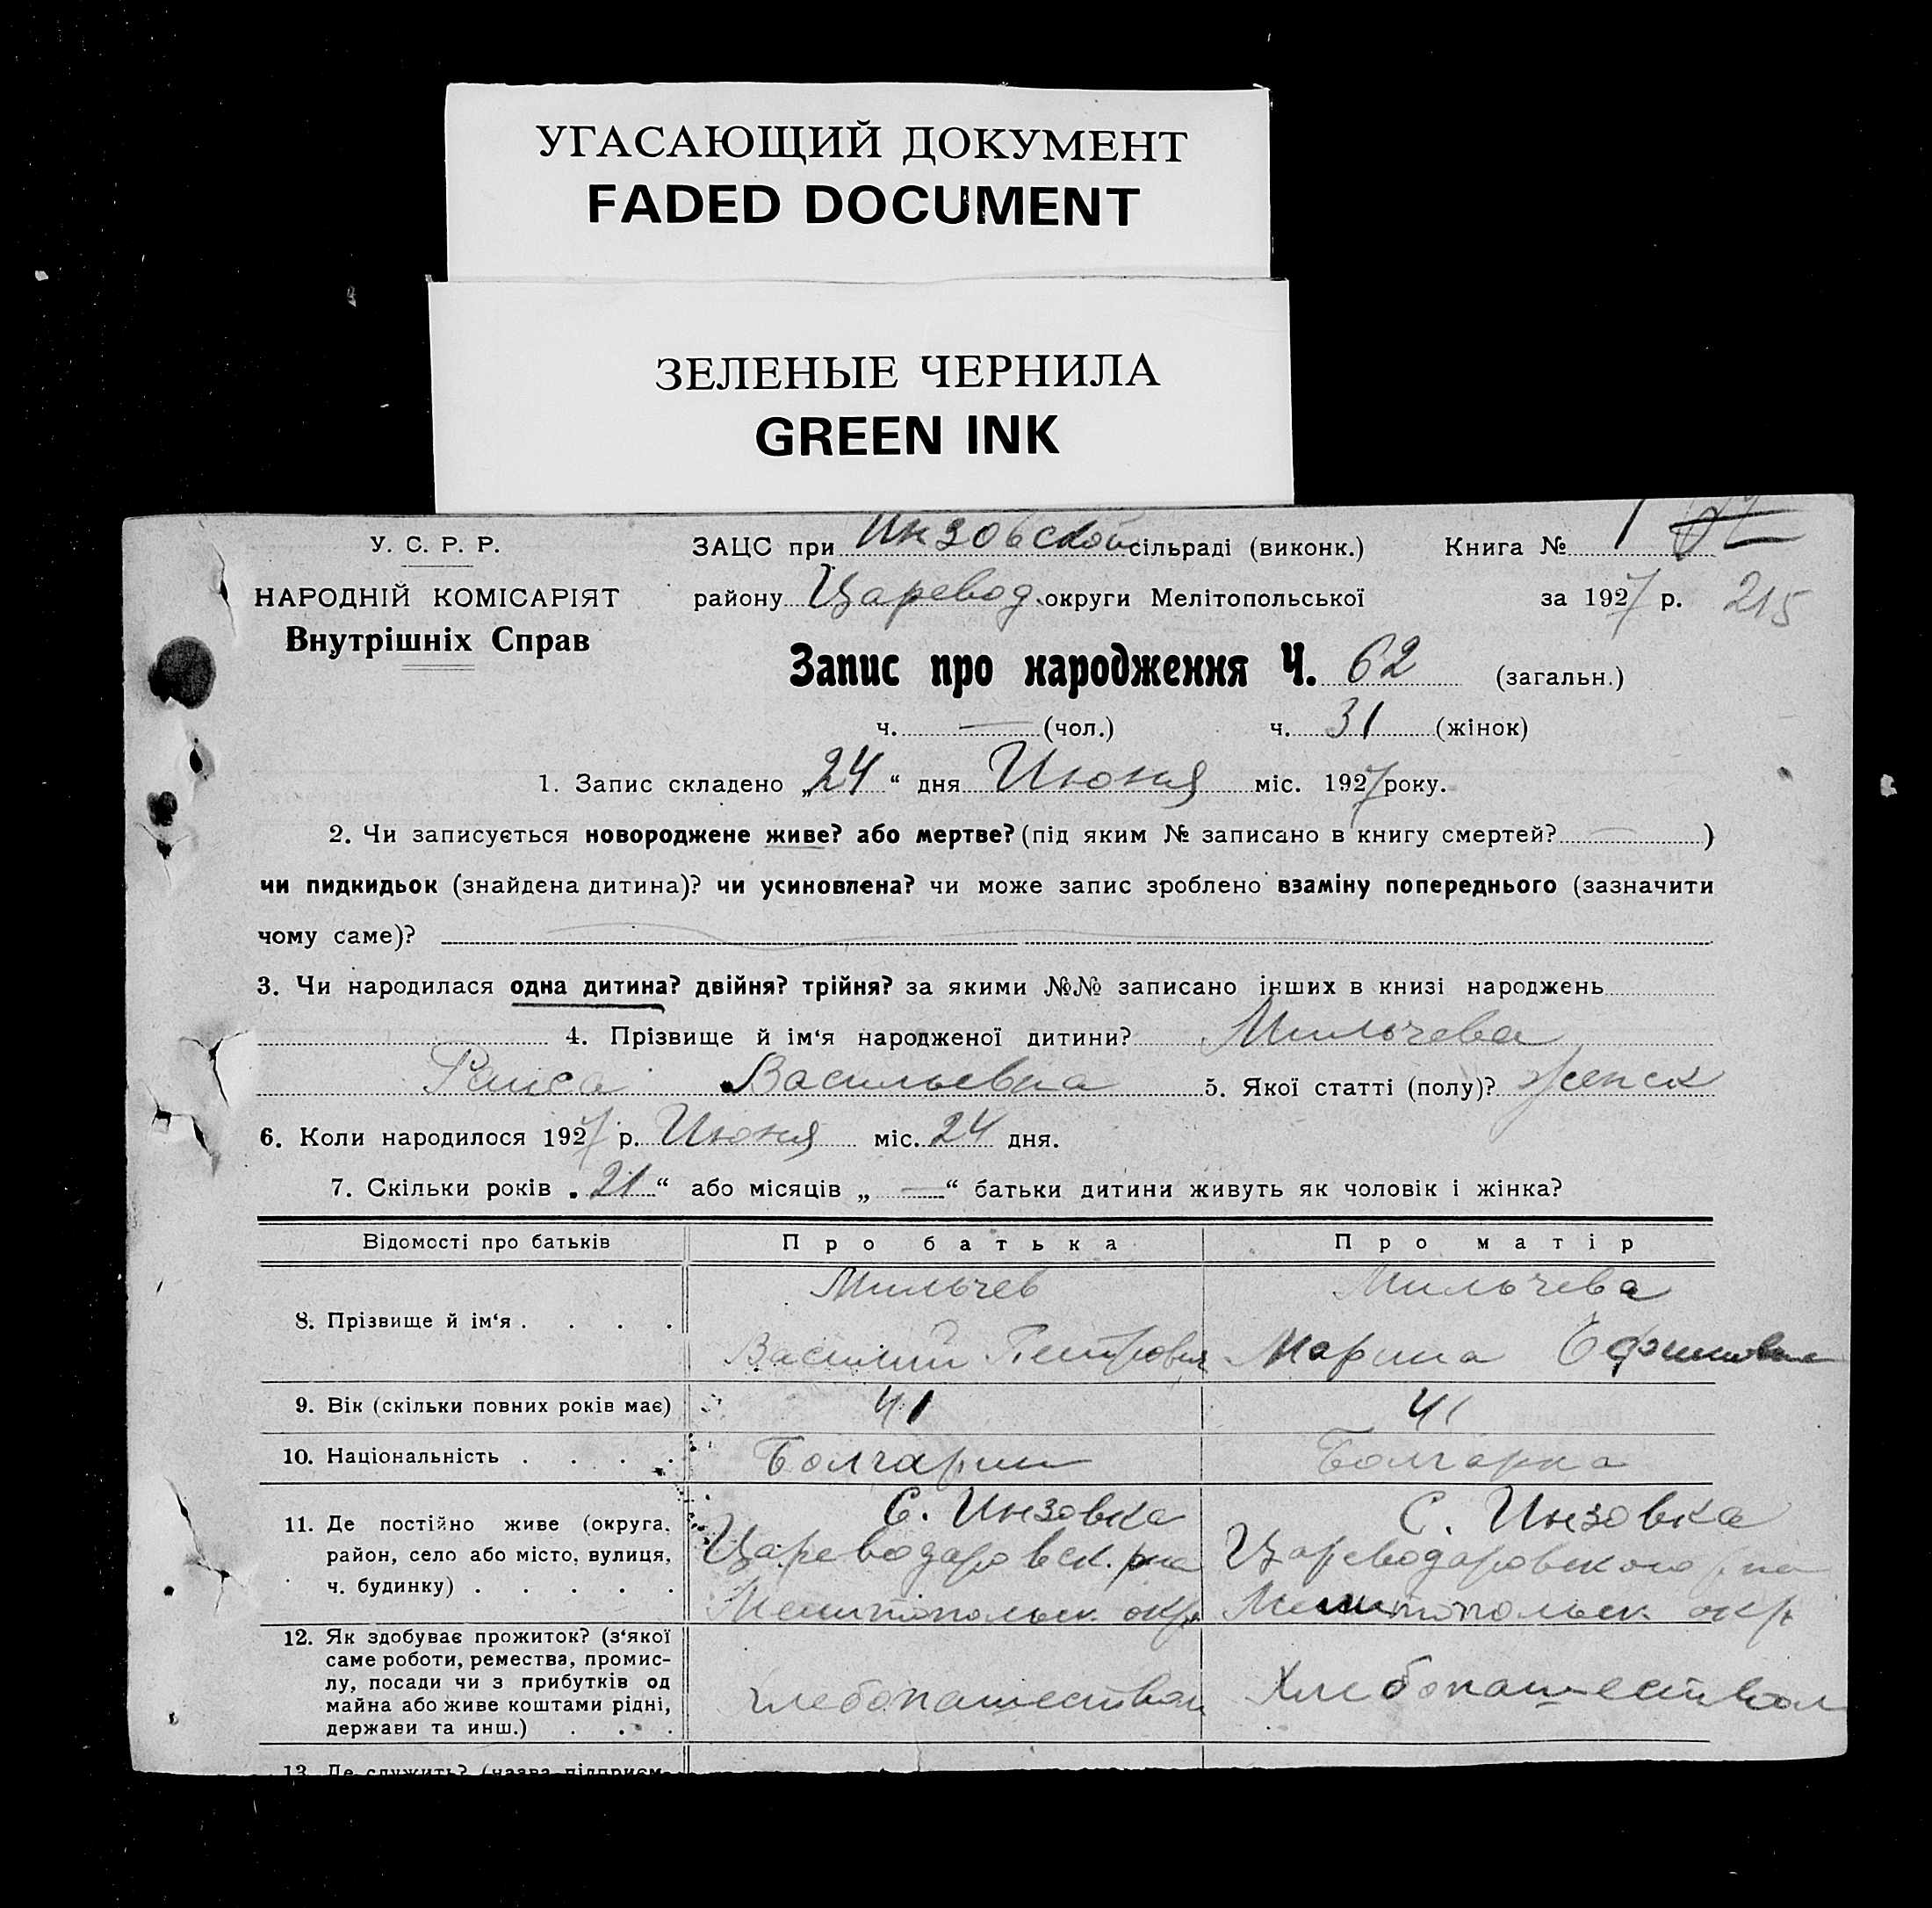 УГАСАЮЩИЙ ДОКУМЕНТ
FADED DOCUMENT
ЗЕЛЕНЫЕ ЧЕРНИЛА
GREEN INK
У. С. Р. Р.
НАРОДНІЙ КОМІСАРІЯТ
Внутрішніх Справ
ЗАЦС при Инзовской сільраді (виконк.) Книга № 1
району Царевод. округи Мелітопольської за 1927 р. 215
Запис про народження Ч. 62 (загальн.)
ч. — (чол.) ч. 31 (жінок)
1. Запис складено „24“ дня Июня міс. 1927 року.
2. Чи записується новороджене живе? або мертве? (під яким № записано в книгу смертей? — )
чи пидкидьок (знайдена дитина)? чи усиновлена? чи може запис зроблено взаміну попереднього (зазначити
чому саме)?
3. Чи народилася одна дитина? двійня? трійня? за якими №№ записано інших в книзі народжень
4. Прізвище й ім‘я народженої дитини? Мильчева
Раиса Васильевна 5. Якої статті (полу)? женск
6. Коли народилося 1927 р. Июня міс. 24 дня.
7. Скільки років „21“ або місяців „—“ батьки дитини живуть як чоловік і жінка?
Відомості про батьків Про батька Про матір
8. Прізвище й ім‘я . . . . Мильчев Мильчева
Василий Петрович Марина Ефимовна
9. Вік (скільки повних років має) 41 41
10. Національність . . . . Болгарин Болгарка
11. Де постійно живе (округа, С. Инзовка С. Инзовка
район, село або місто, вулиця, Цареводаровск. рна Цареводаровского рна
ч. будинку) . . . . . Мелитопольск. окр. Мелитопольск. окр.
12. Як здобуває прожиток? (з‘якої
саме роботи, ремества, промис-
лу, посади чи з прибутків од хлебопашеством Хлебопашеством
майна або живе коштами рідні,
держави та инш.) . . .
13. Де служить? (назва підприєм-